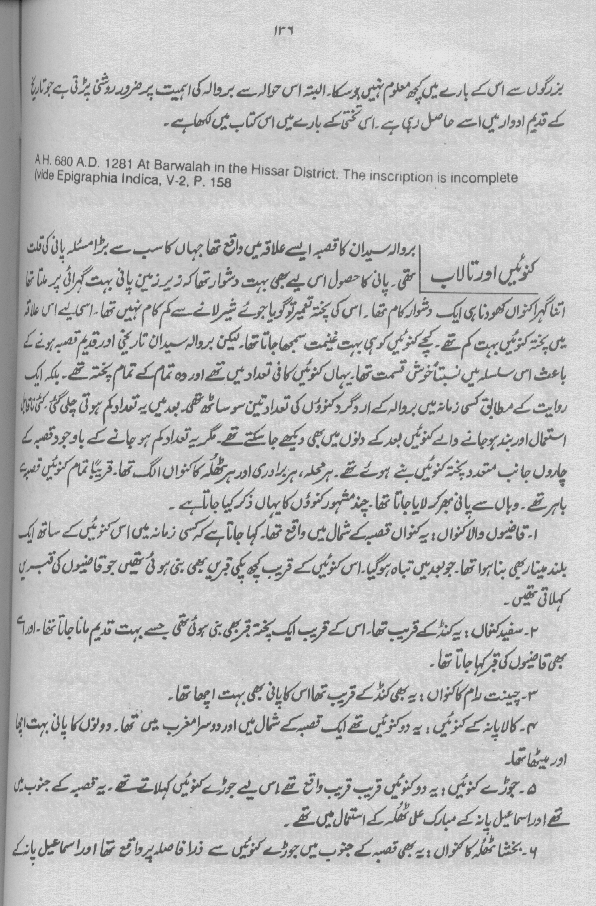 ۱۳۶
بزرگوں سے اس کے بارے میں کچھ معلوم نہیں ہو سکا۔ البتہ اس حوالہ سے بروالہ کی اہمیت پر ضرور روشنی پڑتی ہے جو تاریخ
کے قدیم ادوار میں اسے حاصل رہی ہے۔ اس تختی کے بارے میں اس کتاب میں لکھا ہے۔
A.H. 680 A.D. 1281 At Barwalah in the Hissar District. The inscription is incomplete
(vide Epigraphia Indica, V-2, P. 158
کنوئیں اور تالاب
بروالہ سیدان کا قصبہ ایسے علاقہ میں واقع تھا جہاں کا سب سے بڑا مسئلہ پانی کی قلت
تھی۔ پانی کا حصول اس لیے بھی بہت دشوار تھا کہ زیر زمین پانی بہت گہرائی پر ملتا تھا
اتنا گہرا کنواں کھودنا ہی ایک دشوار کام تھا۔ اس کی پختہ تعمیر تو گویا جوئے شیر لانے سے کم کام نہیں تھا۔ اسی لیے اس علاقہ
میں پختہ کنوئیں بہت کم تھے۔ کچے کنوئیں کو ہی بہت غنیمت سمجھا جاتا تھا۔ لیکن بروالہ سیدان تاریخی اور قدیم قصبہ ہونے کے
باعث اس سلسلہ میں نسبتاً خوش قسمت تھا۔ یہاں کنوئیں کافی تعداد میں تھے اور وہ تمام کے تمام پختہ تھے۔ بلکہ ایک
روایت کے مطابق کسی زمانہ میں بروالہ کے ارد گرد کنوؤں کی تعداد تین سو ساٹھ تھی۔ بعد میں یہ تعداد کم ہوتی چلی گئی، کئی ناقابل
استعمال اور بند ہو جانے والے کنوئیں بعد کے دنوں میں بھی دیکھے جا سکتے تھے۔ مگر یہ تعداد کم ہو جانے کے باوجود قصبہ کے
چاروں جانب متعدد پختہ کنوئیں بنے ہوئے تھے۔ ہر محلہ، ہر برادری اور ہر ٹھلہ کا کنواں الگ تھا۔ قریباً تمام کنوئیں قصبہ سے
باہر تھے۔ وہاں سے پانی بھر کر لایا جاتا تھا۔ چند مشہور کنوؤں کا یہاں ذکر کیا جاتا ہے۔
۱۔ قاضیوں والا کنواں: یہ کنواں قصبہ کے شمال میں واقع تھا۔ کہا جاتا ہے کہ کسی زمانہ میں اس کنوئیں کے ساتھ ایک
بلند مینار بھی بنا ہوا تھا۔ جو بعد میں تباہ ہو گیا۔ اس کنوئیں کے قریب کچھ پکی قبریں بھی بنی ہوئی تھیں جو قاضیوں کی قبریں
کہلاتی تھیں۔
۲۔ سفید کنواں: یہ کنڈ کے قریب تھا۔ اس کے قریب ایک پختہ قبر بھی بنی ہوئی تھی جسے بہت قدیم مانا جاتا تھا۔ اور اسے
بھی قاضیوں کی قبر کہا جاتا تھا۔
۳۔ چینت رام کا کنواں: یہ بھی کنڈ کے قریب تھا اس کا پانی بھی بہت اچھا تھا۔
۴۔ کالا پانہ کے کنوئیں: یہ دو کنوئیں تھے ایک قصبہ کے شمال میں اور دوسرا مغرب میں تھا۔ دونوں کا پانی بہت اچھا
اور میٹھا تھا۔
۵۔ جوڑے کنوئیں: یہ دو کنوئیں قریب قریب واقع تھے اس لیے جوڑے کنوئیں کہلاتے تھے۔ یہ قصبہ کے جنوب میں
تھے اور اسماعیل پانہ کے مبارک علی ٹھلہ کے استعمال میں تھے۔
۶۔ بخشا ٹھلہ کا کنواں: یہ بھی قصبہ کے جنوب میں جوڑے کنوئیں سے ذرا فاصلہ پر واقع تھا اور اسماعیل پانہ کے